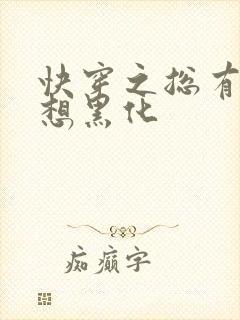 快穿之总有
想黑化
痴癫字